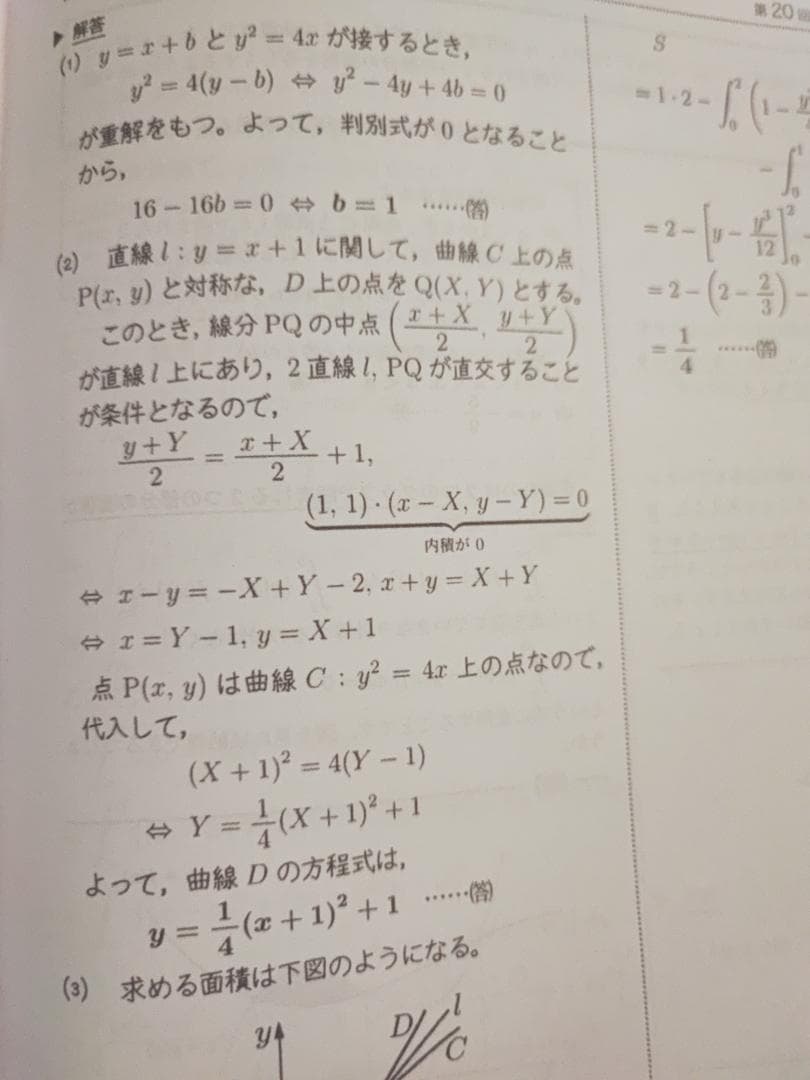 第20回
▶ 解答
(1) y = x + b と y² = 4x が接するとき，
y² = 4(y − b) ⇔ y² − 4y + 4b = 0
が重解をもつ。よって，判別式が 0 となること
から，
16 − 16b = 0 ⇔ b = 1 ……(答)
(2) 直線 l : y = x + 1 に関して，曲線 C 上の点
P(x, y) と対称な，D 上の点を Q(X, Y) とする。
このとき，線分 PQ の中点 ( (x + X)/2 , (y + Y)/2 )
が直線 l 上にあり，2 直線 l, PQ が直交すること
が条件となるので，
(y + Y)/2 = (x + X)/2 + 1,
(1, 1)·(x − X, y − Y) = 0
内積が 0
⇔ x − y = −X + Y − 2, x + y = X + Y
⇔ x = Y − 1, y = X + 1
点 P(x, y) は曲線 C : y² = 4x 上の点なので，
代入して，
(X + 1)² = 4(Y − 1)
⇔ Y = 1/4 (X + 1)² + 1
よって，曲線 D の方程式は，
y = 1/4 (x + 1)² + 1 ……(答)
(3) 求める面積は下図のようになる。
y D l
C
S
= 1·2 − ∫₀² (1 − y
− ∫₀¹
= 2 − [y − y³/12]₀² −
= 2 − (2 − 2/3) −
= 1/4 ……(答)